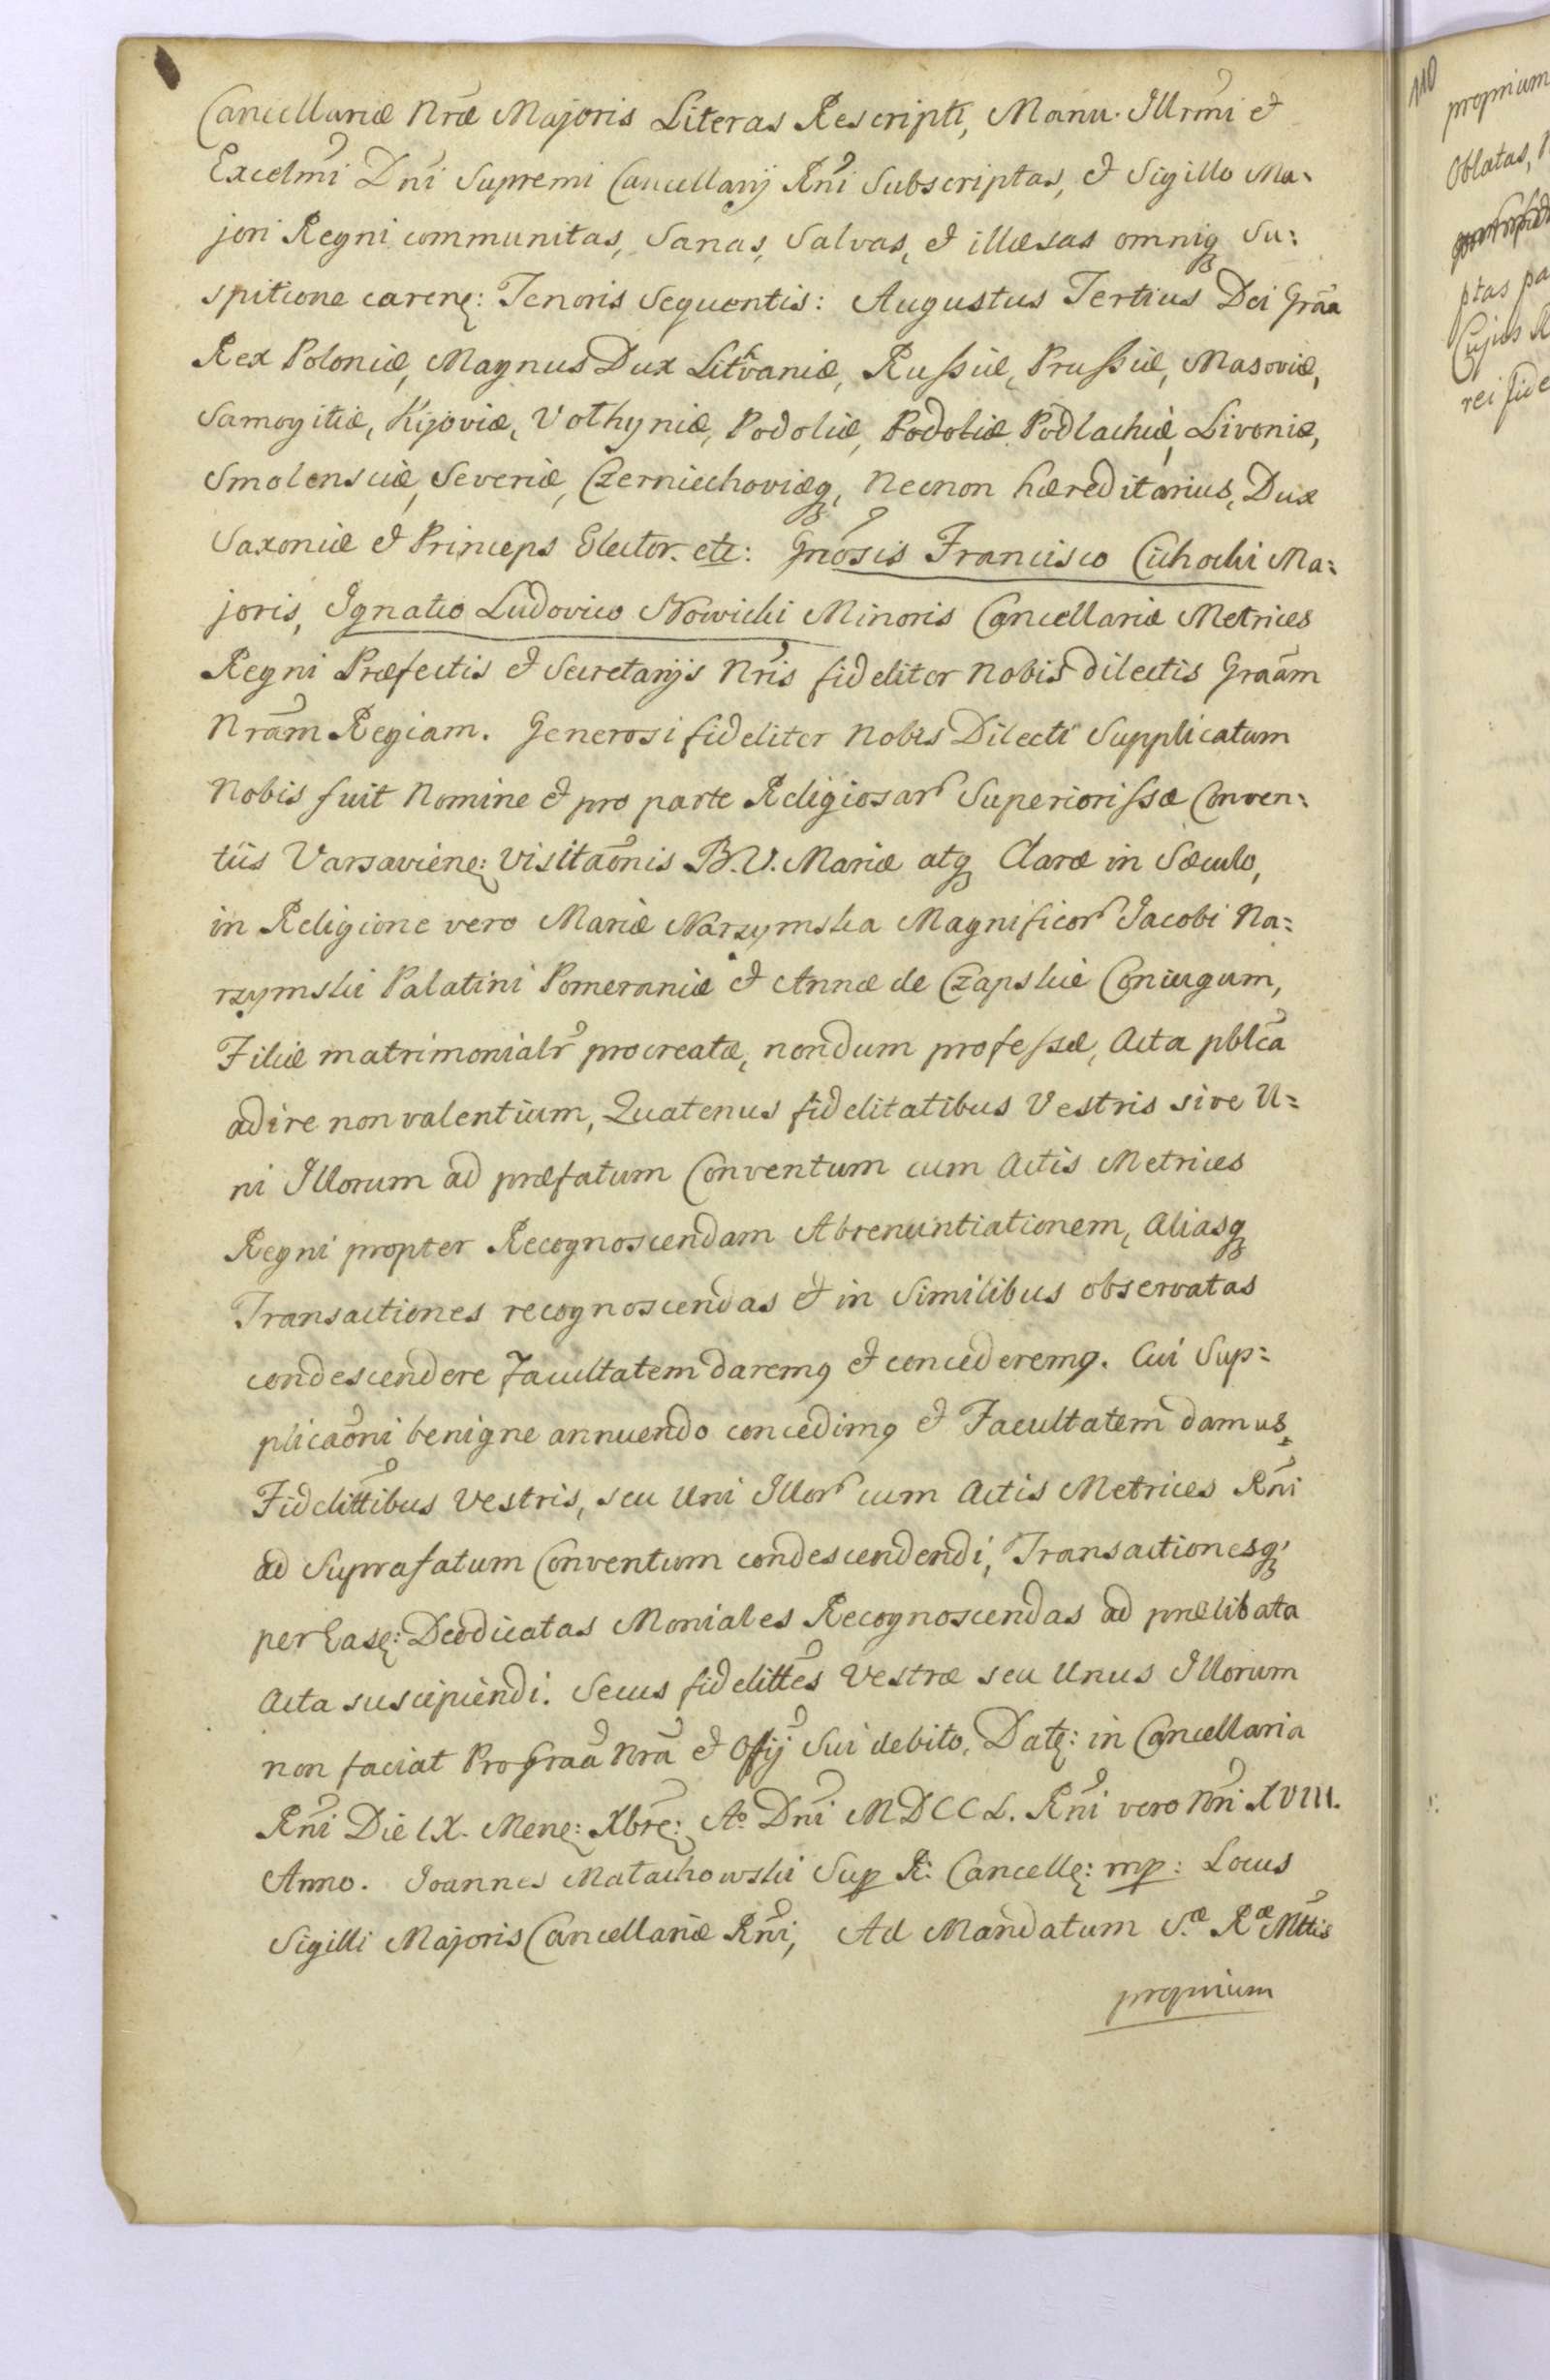 Cancellariæ Nræ Majoris Literas Rescripti, Manu Illrmi et
Excelmi Dni Supremi Cancellarij Rni Subscriptas, et Sigillo Ma-
jori Regni communitas, Sanas, Salvas, et illæsas omniq Su:
spitione carenę: Tenoris Sequentis: Augustus Tertius Dei Graa
Rex Poloniæ, Magnus Dux Lithvaniæ, Russiæ, Prussiæ, Masoviæ,
Samogitiæ, Kijoviæ, Volhyniæ, Podoliæ, Podoliæ Podlachiæ, Livoniæ,
Smolensciæ, Severiæ, Czerniechoviæq, Necnon hæreditarius, Dux
Saxoniæ et Princeps Elector. etc: Gnosis Francisco Cichocki Ma:
joris, Ignatio Ludovico Nowicki Minoris Cancellariæ Metrices
Regni Præfectis et Secretarijs Nris fideliter Nobis dilectis Graam
Nram Regiam. Generosi fideliter Nobis Dilecti Supplicatum
Nobis fuit Nomine et pro parte Religiosar Superiorissæ Conven:
tûs Varsavienę: Visitaonis B.V. Mariæ atq Claræ in Sæculo,
in Religione vero Mariæ Narzymska Magnificor Jacobi Na:
rzymski Palatini Pomeraniæ et Annæ de Czapskie Coniugum,
Filiæ matrimonialr procreatæ, nondum professæ, Acta pblca
adire non valentium, Quatenus fidelitatibus Vestris sive U=
ni Illorum ad præfatum Conventum cum Actis Metrices
Regni propter Recognoscendam Abrenuntiationem, Aliasq
Transactiones recognoscendas et in Similibus observatas
condescendere Facultatem daremg et concederemg. Cui Sup:
plicaoni benigne annuendo concedimg et Facultatem damus,
Fidelittibus Vestris, seu Uni Illor cum Actis Metrices Rni
ad Suprafatum Conventum condescendendi, Transactionesq
per Easę: Deodicatas Moniales Recognoscendas ad prælibata
Acta suscipiendi. Secus fidelittes Vestræ seu Unus Illorum
non faciat Pro Graa Nra et Offij Sui debito. Datę: in Cancellaria
Rni Die IX. Menę: Xbrę: Ao Dni MDCCL. Rni vero Nri XVIII.
Anno. Joannes Małachowski Sup R. Cancellę: mp: Locus
Sigilli Majoris Cancellariæ Rni, Ad Mandatum S.æ Ræ Mttis
proprium
110
proprium
Oblatas,
ptas pa
Cujus
rei fide